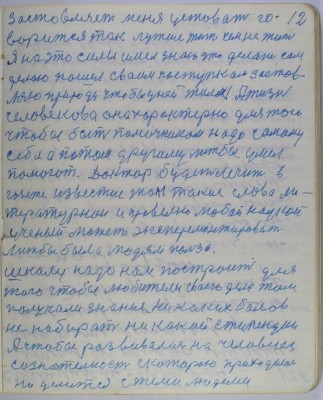 заставляет меня уставать го- 12
ворится так лучше тот чем не тот
Я на это силы имел знаю это делаю сам
делаю пошел своим поступкам застав-
ляю природу чтобы у ней жил. А жизнь
человекова она характерно для того
чтобы быть помощником надо самому
себе а потом другому чтобы умел
помогат. Доктор будет лечить в
газете известие
такие слова ли-
тературном и правильно любой научной
ученый может эксперементироват
лижбы была людям польза.
школу надо нам построит для
того чтобы любители своего дела там
получали знания. Ни каких балов
не набират ни какой стипендии
А чтобы развивалася на человеке
сознательност с которою приходится
по делится с теми людями